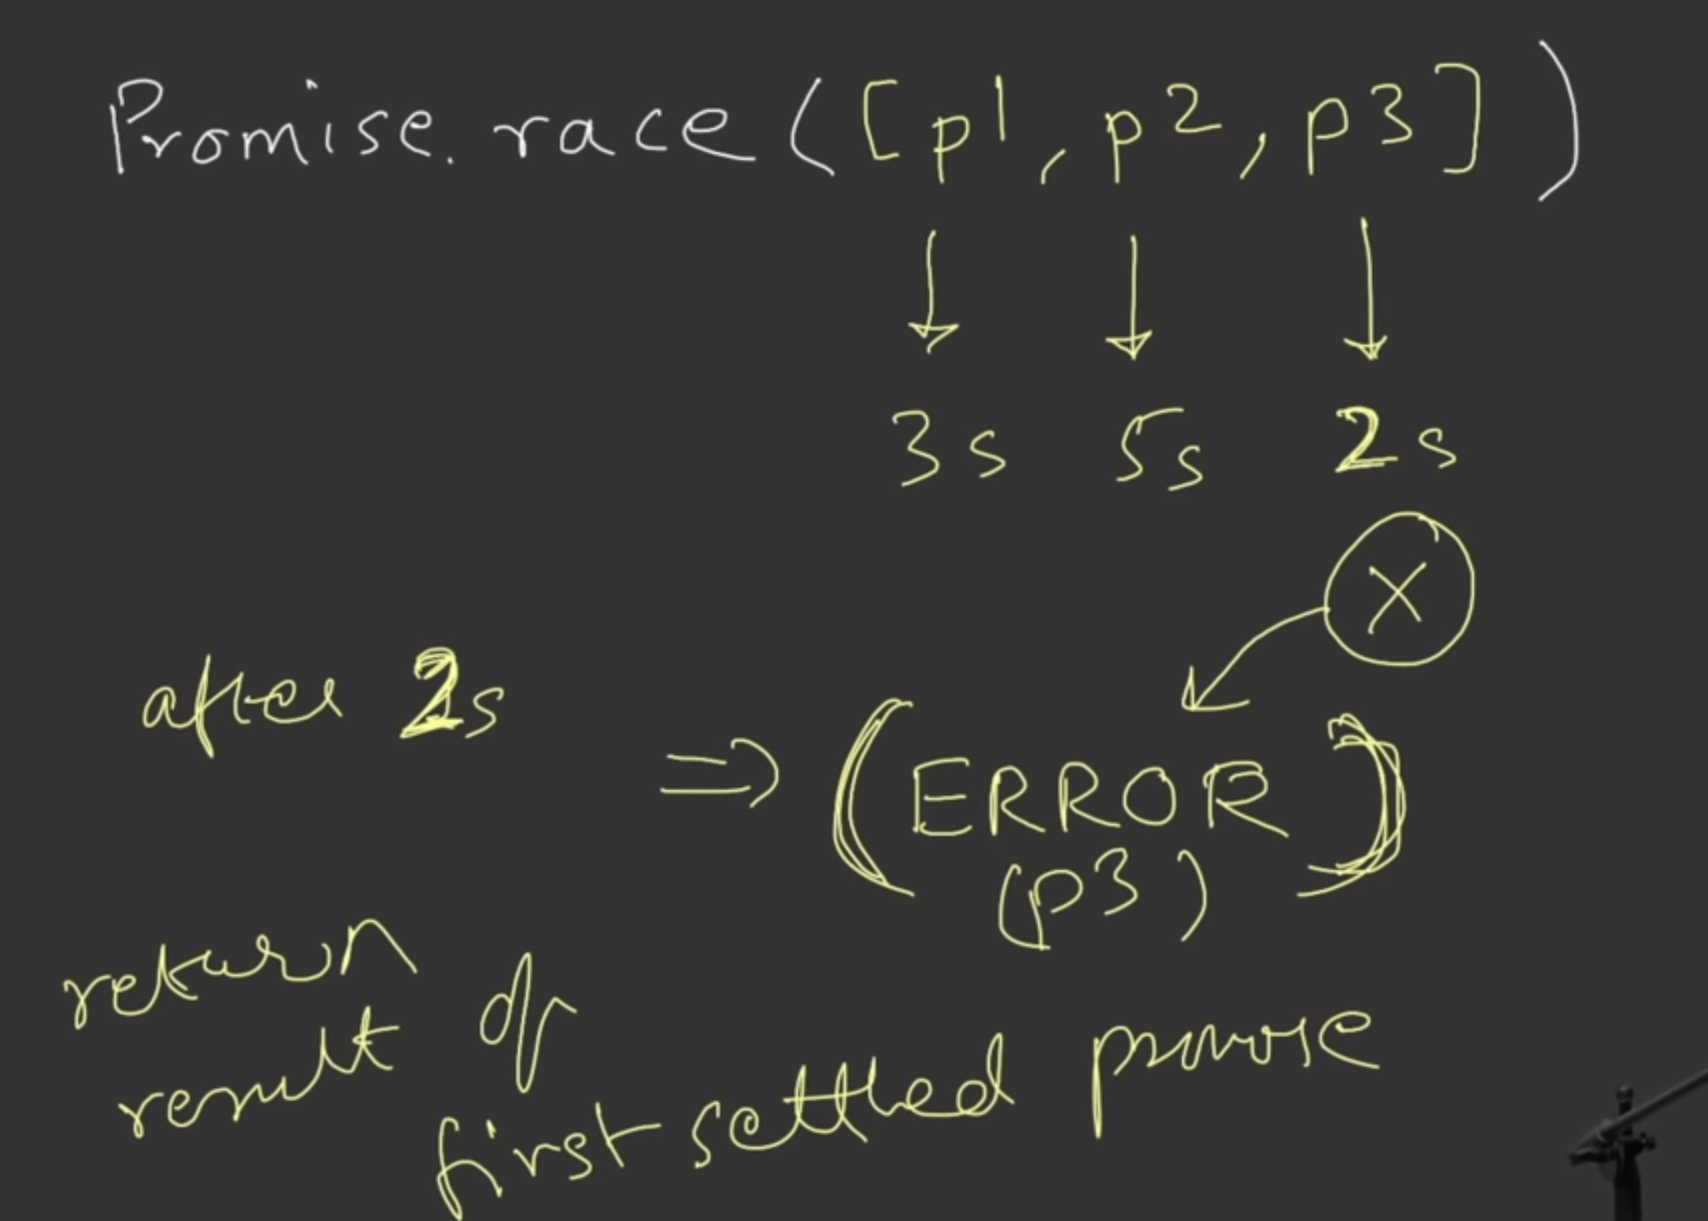 Promise.race([p1, p2, p3])
3s 5s 2s
X
after 2s
⇒ (ERROR)
(p3)
return
result of
first settled promise